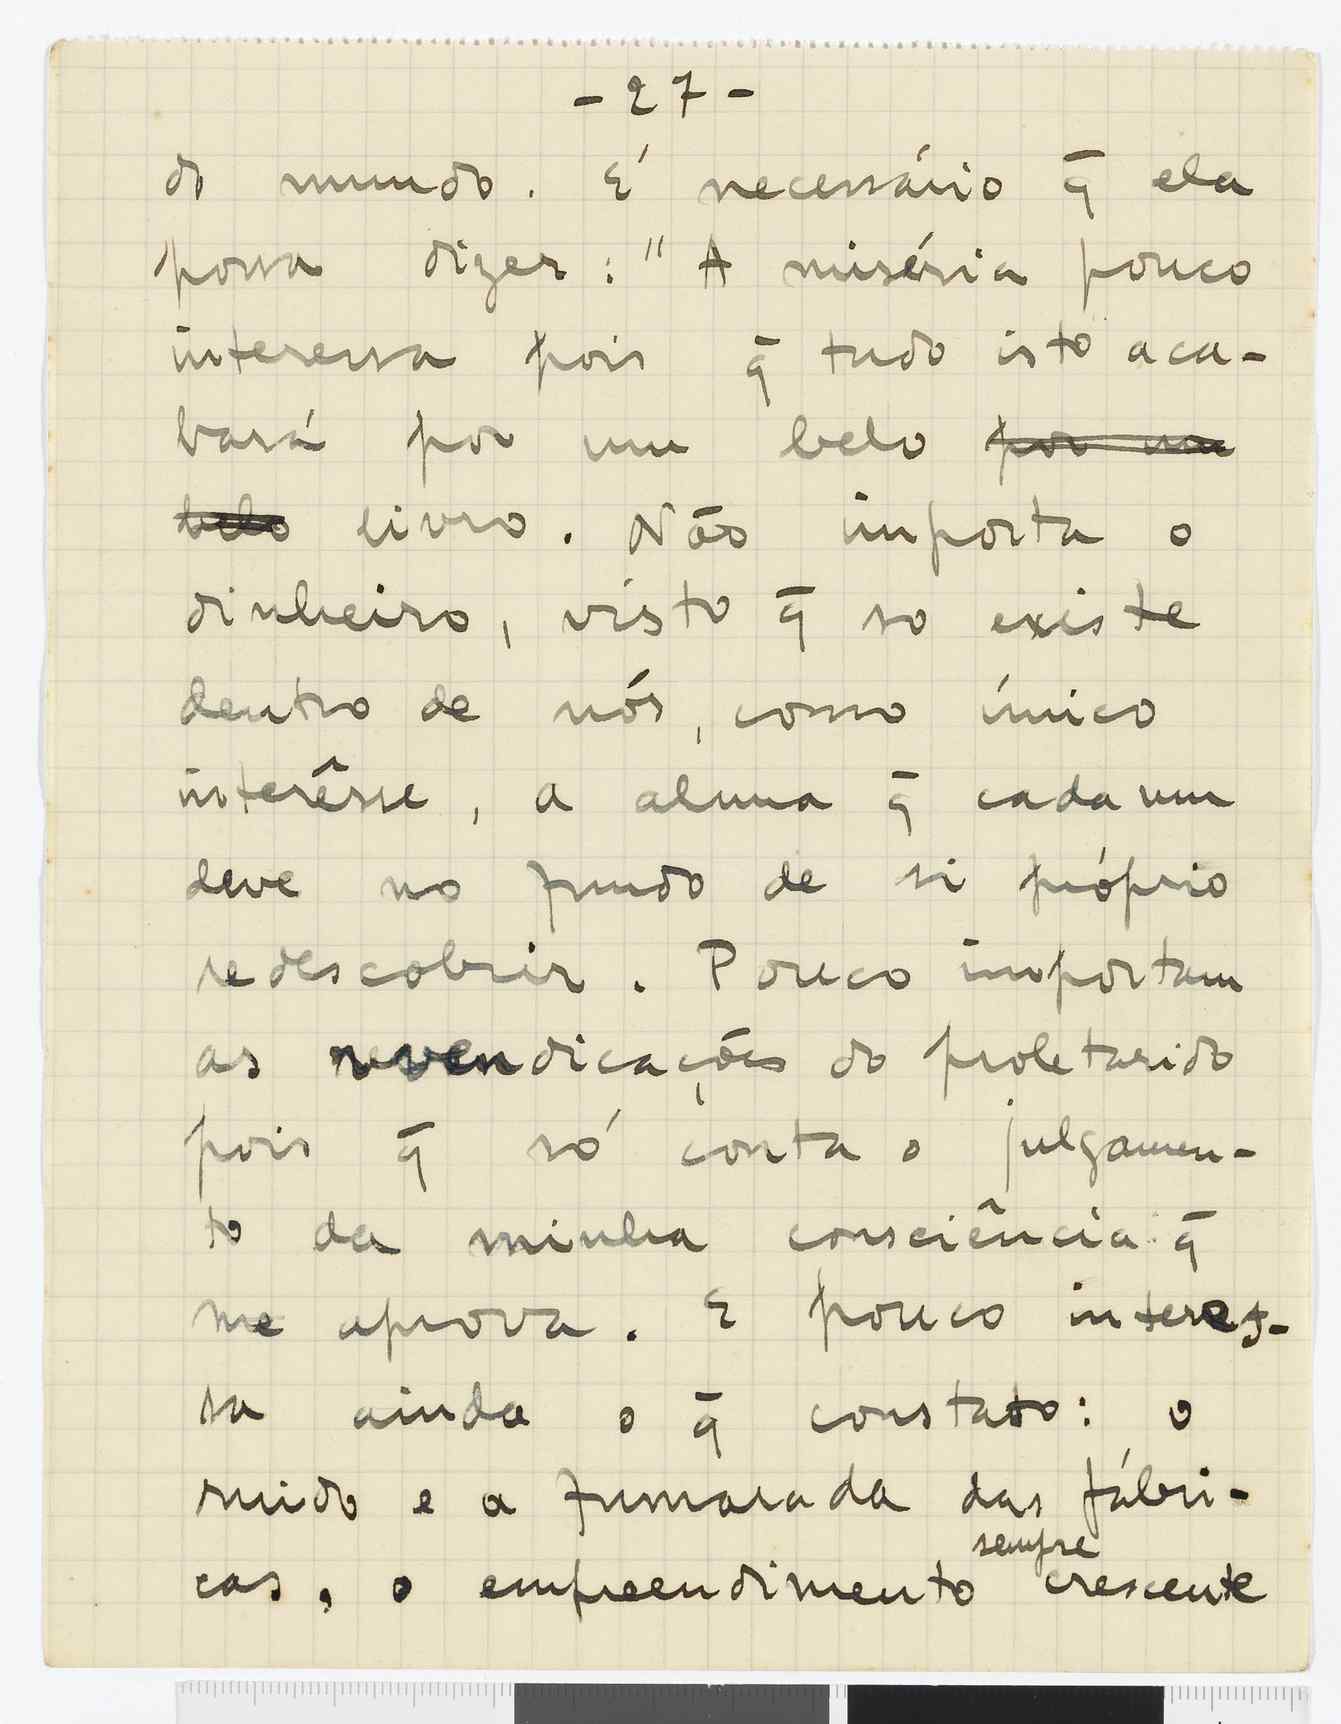 - 27 -
do mundo. É necessário q̄ ela
possa dizer: "A miséria pouco
interessa pois q̄ tudo isto aca-
bará por um belo por um
belo livro. Não importa o
dinheiro, visto q̄ so existe
dentro de nós, como único
interêsse, a alma q̄ cada um
deve no fundo de si próprio
redescobrir. Pouco importam
as revendicações do proletarido
pois q̄ só conta o julgamen-
to da minha consciência q̄
me aprova. E pouco interes-
sa ainda o q̄ constato: o
ruido e a fumarada das fábri-
sempre
cas, o empreendimento crescente